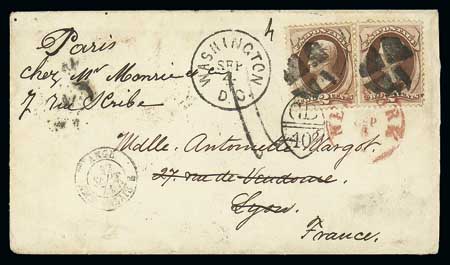 Paris
chez Mr Monrie
7 rue Scribe
WASHINGTON
SEP
4
D.C.
GB
40c
NEW YORK
SEP
Mdlle. Antoinette Margot.
27. rue de Vendome.
Lyon.
France.